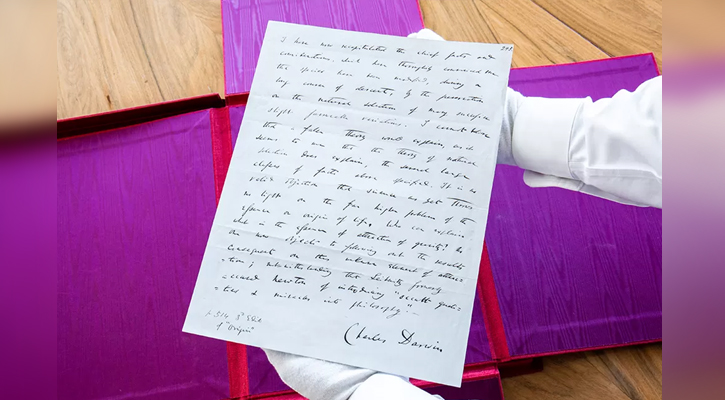 I have now recapitulated the chief facts and
considerations, which have thoroughly convinced me
that species have been modified, during a
long course of descent, by the preservation
or the natural selection of many successive
slight favourable variations. I cannot believe
that a false theory would explain, as it
seems to me that the theory of natural
selection does explain, the several large
classes of facts above specified. It is no
valid objection that science as yet throws
no light on the far higher problem of the
essence or origin of life. Who can explain
what is the essence of attraction of gravity? No
one now objects to following out the results
consequent on this unknown element of attrac
=tion; notwithstanding that Leibnitz formerly
accused Newton of introducing "occult quali=
=ties & miracles into philosophy".—
p. 514 3d Edit
of "Origin"
Charles Darwin